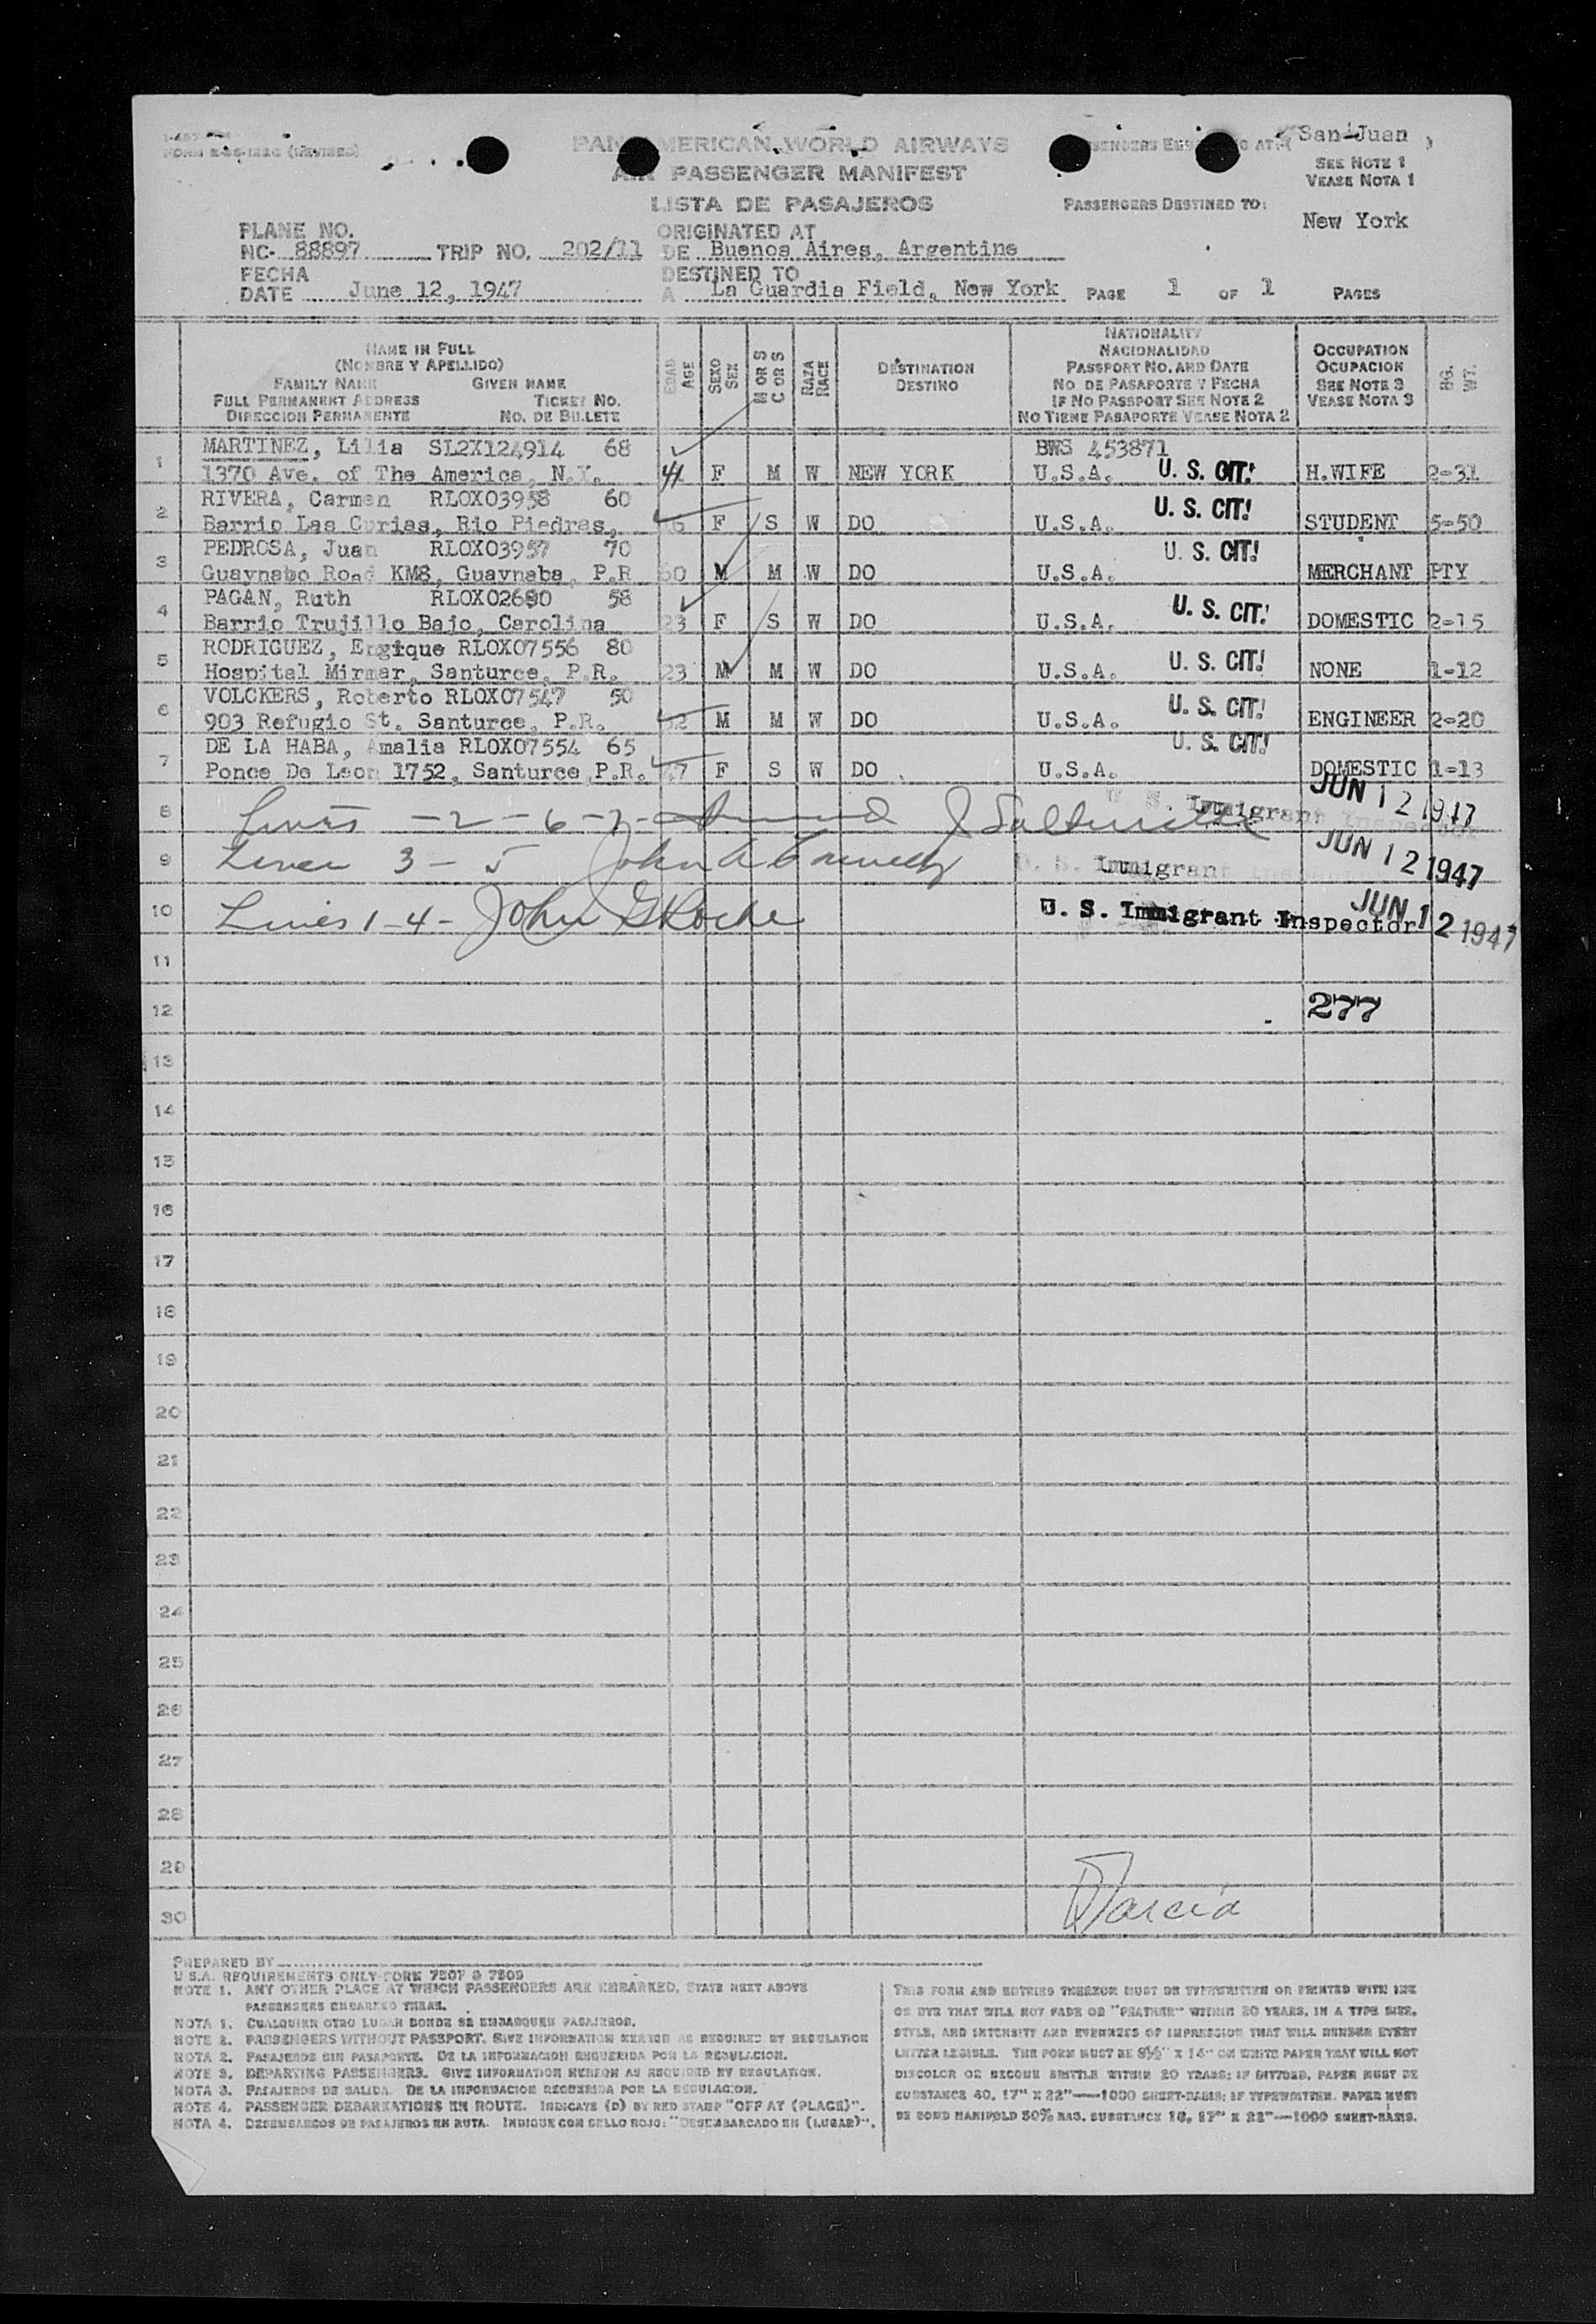 FORM
PAN AMERICAN WORLD AIRWAYS
San Juan
AIR PASSENGER MANIFEST
SEE NOTE 1
VEASE NOTA 1
LISTA DE PASAJEROS
PASSENGERS DESTINED TO:
New York
PLANE NO.
NC- 88897 TRIP NO. 202/11
ORIGINATED AT
DE Buenos Aires, Argentine
FECHA
DATE June 12, 1947
DESTINED TO
A La Guardia Field, New York PAGE 1 OF 1 PAGES
NAME IN FULL
(NOMBRE Y APELLIDO)
FAMILY NAME GIVEN NAME
FULL PERMANENT ADDRESS TICKET NO.
DIRECCION PERMANENTE NO. DE BILLETE
EDAD
AGE
SEXO
SEX
M OR S
C OR S
RAZA
RACE
DESTINATION
DESTINO
NATIONALITY
NACIONALIDAD
PASSPORT NO. AND DATE
NO DE PASAPORTE Y FECHA
IF NO PASSPORT SEE NOTE 2
NO TIENE PASAPORTE VEASE NOTA 2
OCCUPATION
OCUPACION
SEE NOTE 3
VEASE NOTA 3
BG.
WT.
MARTINEZ, Lilia SL2X124914 68 BWS 453871
1 1370 Ave. of The America, N.Y. 41 F M W NEW YORK U.S.A. U. S. CIT! H.WIFE 2-31
RIVERA, Carmen RLOX03958 60 U. S. CIT!
2 Barrio Las Curias, Rio Piedras, F S W DO U.S.A. STUDENT 5-50
PEDROSA, Juan RLOX03957 70 U. S. CIT!
3 Guaynabo Road KM8, Guaynaba, P.R 60 M M W DO U.S.A. MERCHANT PTY
PAGAN, Ruth RLOX02690 58 U. S. CIT!
4 Barrio Trujillo Bajo, Carolina 23 F S W DO U.S.A. DOMESTIC 2-15
RODRIGUEZ, Engique RLOX07556 80
5 Hospital Mirmar, Santurce, P.R. 23 M M W DO U.S.A. U. S. CIT! NONE 1-12
VOLCKERS, Roberto RLOX07547 50 U. S. CIT!
6 903 Refugio St. Santurce, P.R. M M W DO U.S.A. ENGINEER 2-20
DE LA HABA, Amalia RLOX07554 65 U. S. CIT!
7 Ponce De Leon 1752, Santurce, P.R. 47 F S W DO U.S.A. DOMESTIC 1-13
JUN 12 1947
8 Lines -2-6-7- U. S. Immigrant Inspector
JUN 12 1947
9 Lines 3 - 5 John A U. S. Immigrant Inspector
JUN 12 1947
10 Lines 1-4- John G Roche U. S. Immigrant Inspector
11
12 277
13
14
15
16
17
18
19
20
21
22
23
24
25
26
27
28
29
30 Garcia
PREPARED BY
U S.A. REQUIREMENTS ONLY FORM 7507 & 7509
NOTE 1. ANY OTHER PLACE AT WHICH PASSENGERS ARE EMBARKED, STATE NEXT ABOVE
PASSENGERS EMBARKED THERE.
NOTA 1. CUALQUIER OTRO LUGAR DONDE SE EMBARQUEN PASAJEROS.
NOTE 2. PASSENGERS WITHOUT PASSPORT. GIVE INFORMATION HEREON AS REQUIRED BY REGULATION
NOTA 2. PASAJEROS SIN PASAPORTE. DE LA INFORMACION REQUERIDA POR LA REGULACION.
NOTE 3. DEPARTING PASSENGERS. GIVE INFORMATION HEREON AS REQUIRED BY REGULATION.
NOTA 3. PASAJEROS DE SALIDA. DE LA INFORMACION REQUERIDA POR LA REGULACION.
NOTE 4. PASSENGER DEBARKATIONS EN ROUTE. INDICATE (D) BY RED STAMP "OFF AT (PLACE)".
NOTA 4. DESEMBARCOS DE PASAJEROS EN RUTA. INDIQUE CON SELLO ROJO: "DESEMBARCADO EN (LUGAR)".
THIS FORM AND ENTRIES THEREON MUST BE TYPEWRITTEN OR PRINTED WITH INK
OR DYE THAT WILL NOT FADE OR "FEATHER" WITHIN 20 YEARS, IN A TYPE SIZE,
STYLE, AND INTENSITY AND EVENNESS OF IMPRESSION THAT WILL RENDER EVERY
LETTER LEGIBLE. THE FORM MUST BE 8½" X 14" ON WHITE PAPER THAT WILL NOT
DISCOLOR OR BECOME BRITTLE WITHIN 20 YEARS; IF DITTOED, PAPER MUST BE
SUBSTANCE 40, 17" X 22"—1000 SHEET-BASIS; IF TYPEWRITTEN, PAPER MUST
BE BOND MANIFOLD 50% RAG. SUBSTANCE 16, 17" X 22"—1000 SHEET-BASIS.